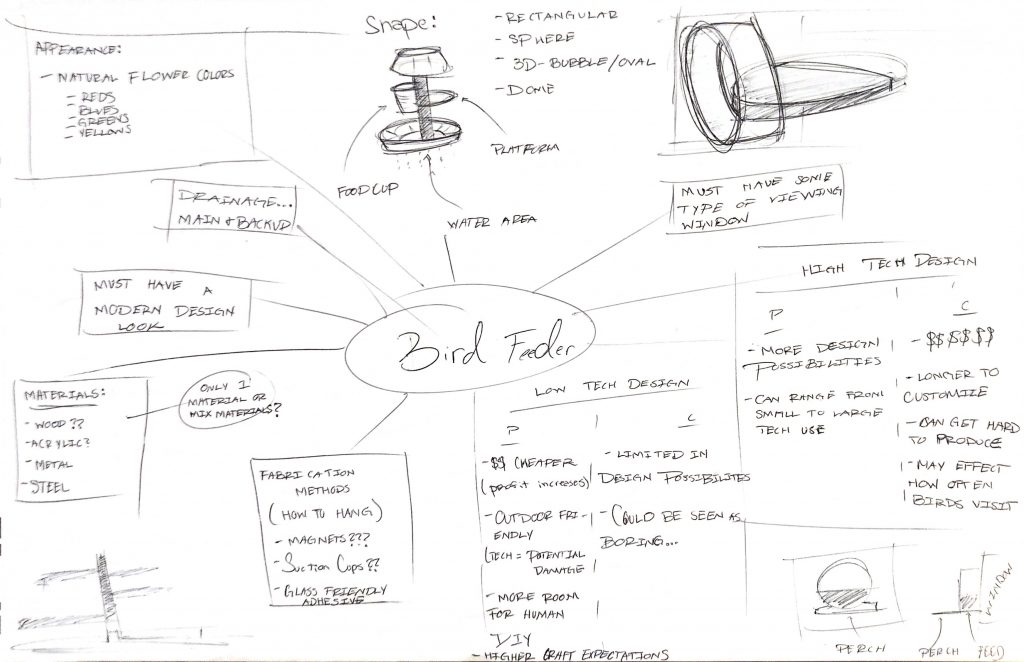 APPEARANCE:
- NATURAL FLOWER COLORS
- REDS
- BLUES
- GREENS
- YELLOWS
Shape:
- RECTANGULAR
- SPHERE
- 3D-BUBBLE/OVAL
- DOME
FOOD CUP
PLATFORM
WATER AREA
DRAINAGE...
MAIN & BACKUP
MUST HAVE SOME
TYPE OF VIEWING
WINDOW
MUST HAVE A
MODERN DESIGN
LOOK
Bird Feeder
MATERIALS:
- WOOD??
- ACRYLIC?
- METAL
- STEEL
ONLY 1
MATERIAL OR
MIX MATERIALS?
FABRICATION
METHODS
(HOW TO HANG)
- MAGNETS???
- Suction Cups??
- GLASS FRIENDLY
ADHESIVE
LOW TECH DESIGN
P
- $$ CHEAPER
(profit increases)
- OUTDOOR FRI-
ENDLY
(TECH = POTENTIAL
DAMAGE
- MORE ROOM
FOR HUMAN
DIY
- HIGHER CRAFT EXPECTATIONS
C
- LIMITED IN
DESIGN POSSIBILITES
- COULD BE SEEN AS
BORING...
HIGH TECH DESIGN
P
- MORE DESIGN
POSSIBILITIES
- CAN RANGE FROM
SMALL TO LARGE
TECH USE
C
- $$$$$$
- LONGER TO
CUSTOMIZE
- CAN GET HARD
TO PRODUCE
- MAY EFFECT
HOW OFTEN
BIRDS VISIT
PERCH
PERCH
FEED
WINDOW